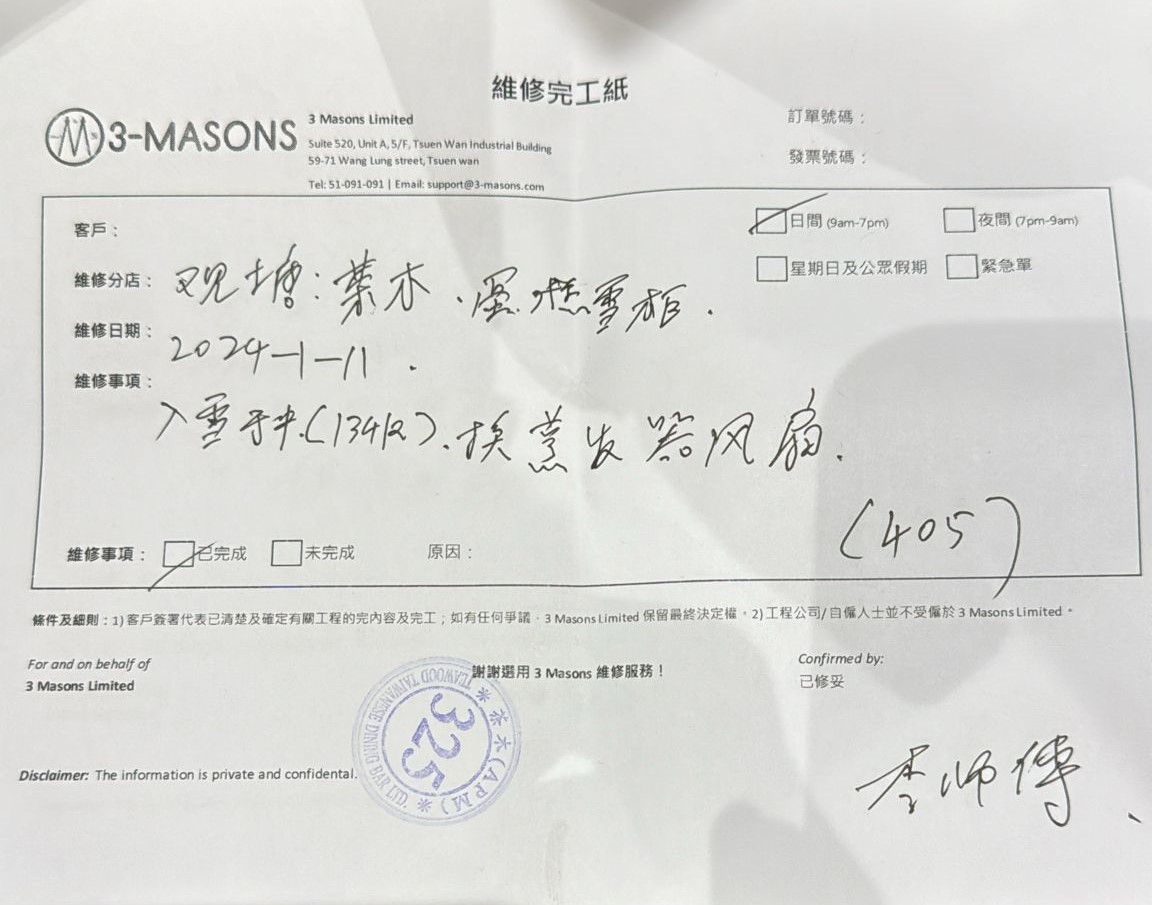 維修完工紙
3-MASONS
3 Masons Limited
Suite 520, Unit A, 5/F, Tsuen Wan Industrial Building
59-71 Wang Lung street, Tsuen wan
Tel: 51-091-091 | Email: support@3-masons.com
訂單號碼：
發票號碼：
客戶：
日間 (9am-7pm) 夜間 (7pm-9am)
星期日及公眾假期 緊急單
維修分店： 观塘：葉木．雪柜．
維修日期： 2024-1-11．
維修事項：
入雪种．(134a)．换蒸发器风扇．
(405)
維修事項： 已完成 未完成 原因：
條件及細則：1) 客戶簽署代表已清楚及確定有關工程的完內容及完工；如有任何爭議，3 Masons Limited 保留最終決定權。2) 工程公司/自僱人士並不受僱於 3 Masons Limited。
For and on behalf of
3 Masons Limited
謝謝選用 3 Masons 維修服務！
Confirmed by:
已修妥
TEAWOOD TAIWANESE DINING BAR LTD.
茶木(APM)
325
Disclaimer: The information is private and confidental.
李师傅